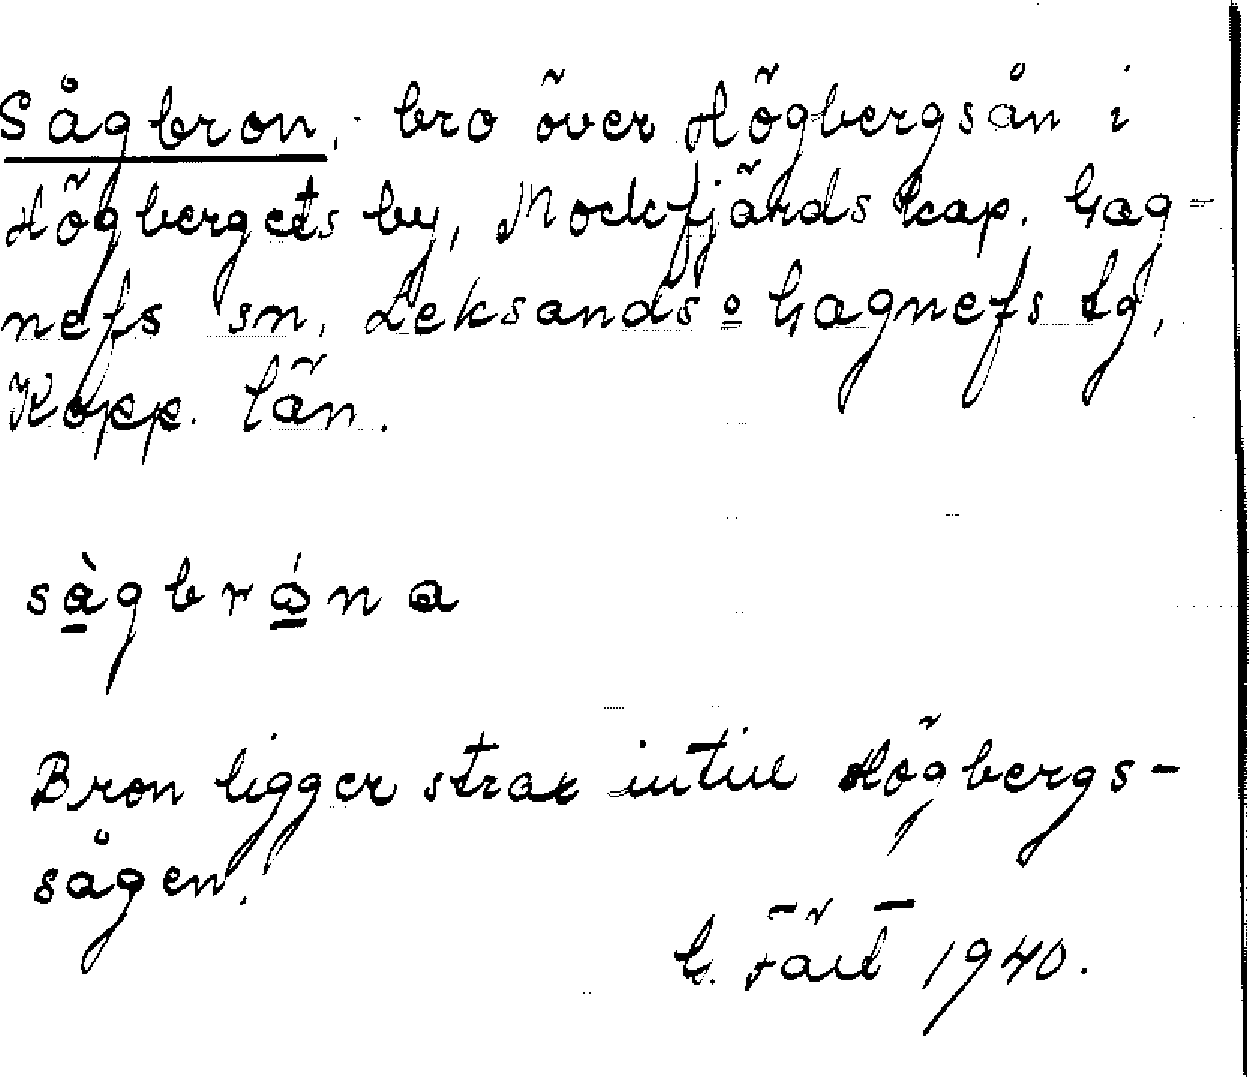 Sågbron, bro över Högbergsån i
Högbergets by, Mockfjärds kap. Gag-
nefs sn, Leksands o Gagnefs tg,
Kopp. län.
Bron ligger strax intill Högbergs-
sågen.
G. 1940.